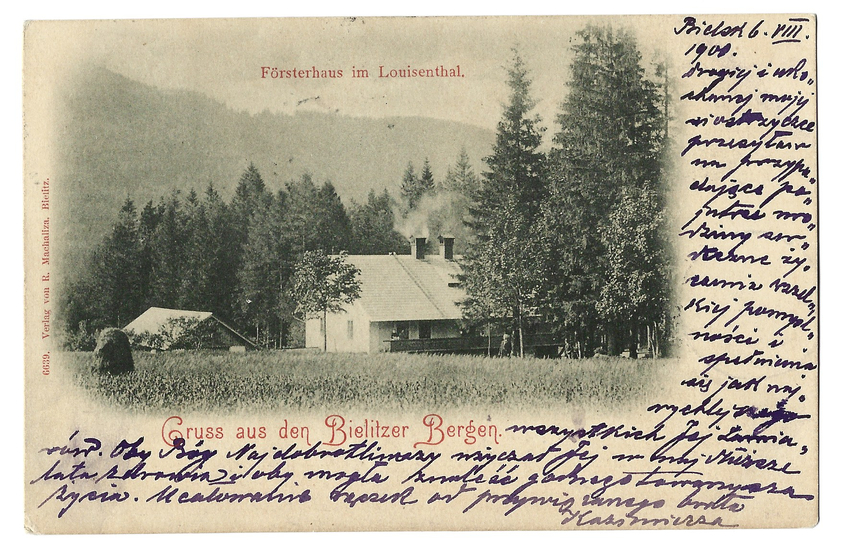 Försterhaus im Louisenthal.
6639. Verlag von R. Machalitza. Bielitz.
Gruss aus den Bielitzer Bergen.
Bielsk 6. VIII.
1900.
Drogiej i uko„
chanej mojej
siostrzyczce
przesyłam
na przypa„
dające po„
jutrze uro„
dziny ser„
deczne ży„
czenia wszel„
kiej pomyśl„
ności i
spełnienia
się jak naj„
rychlej
wszystkich Jej zamia„
rów. Oby Bóg Najdobrotliwszy użyczał Jej w naj dłuższe
lata zdrowia i oby mogła znaleść godnego towarzysza
życia. Ucałowanie rączek od przywiązanego brata
Kazimierza